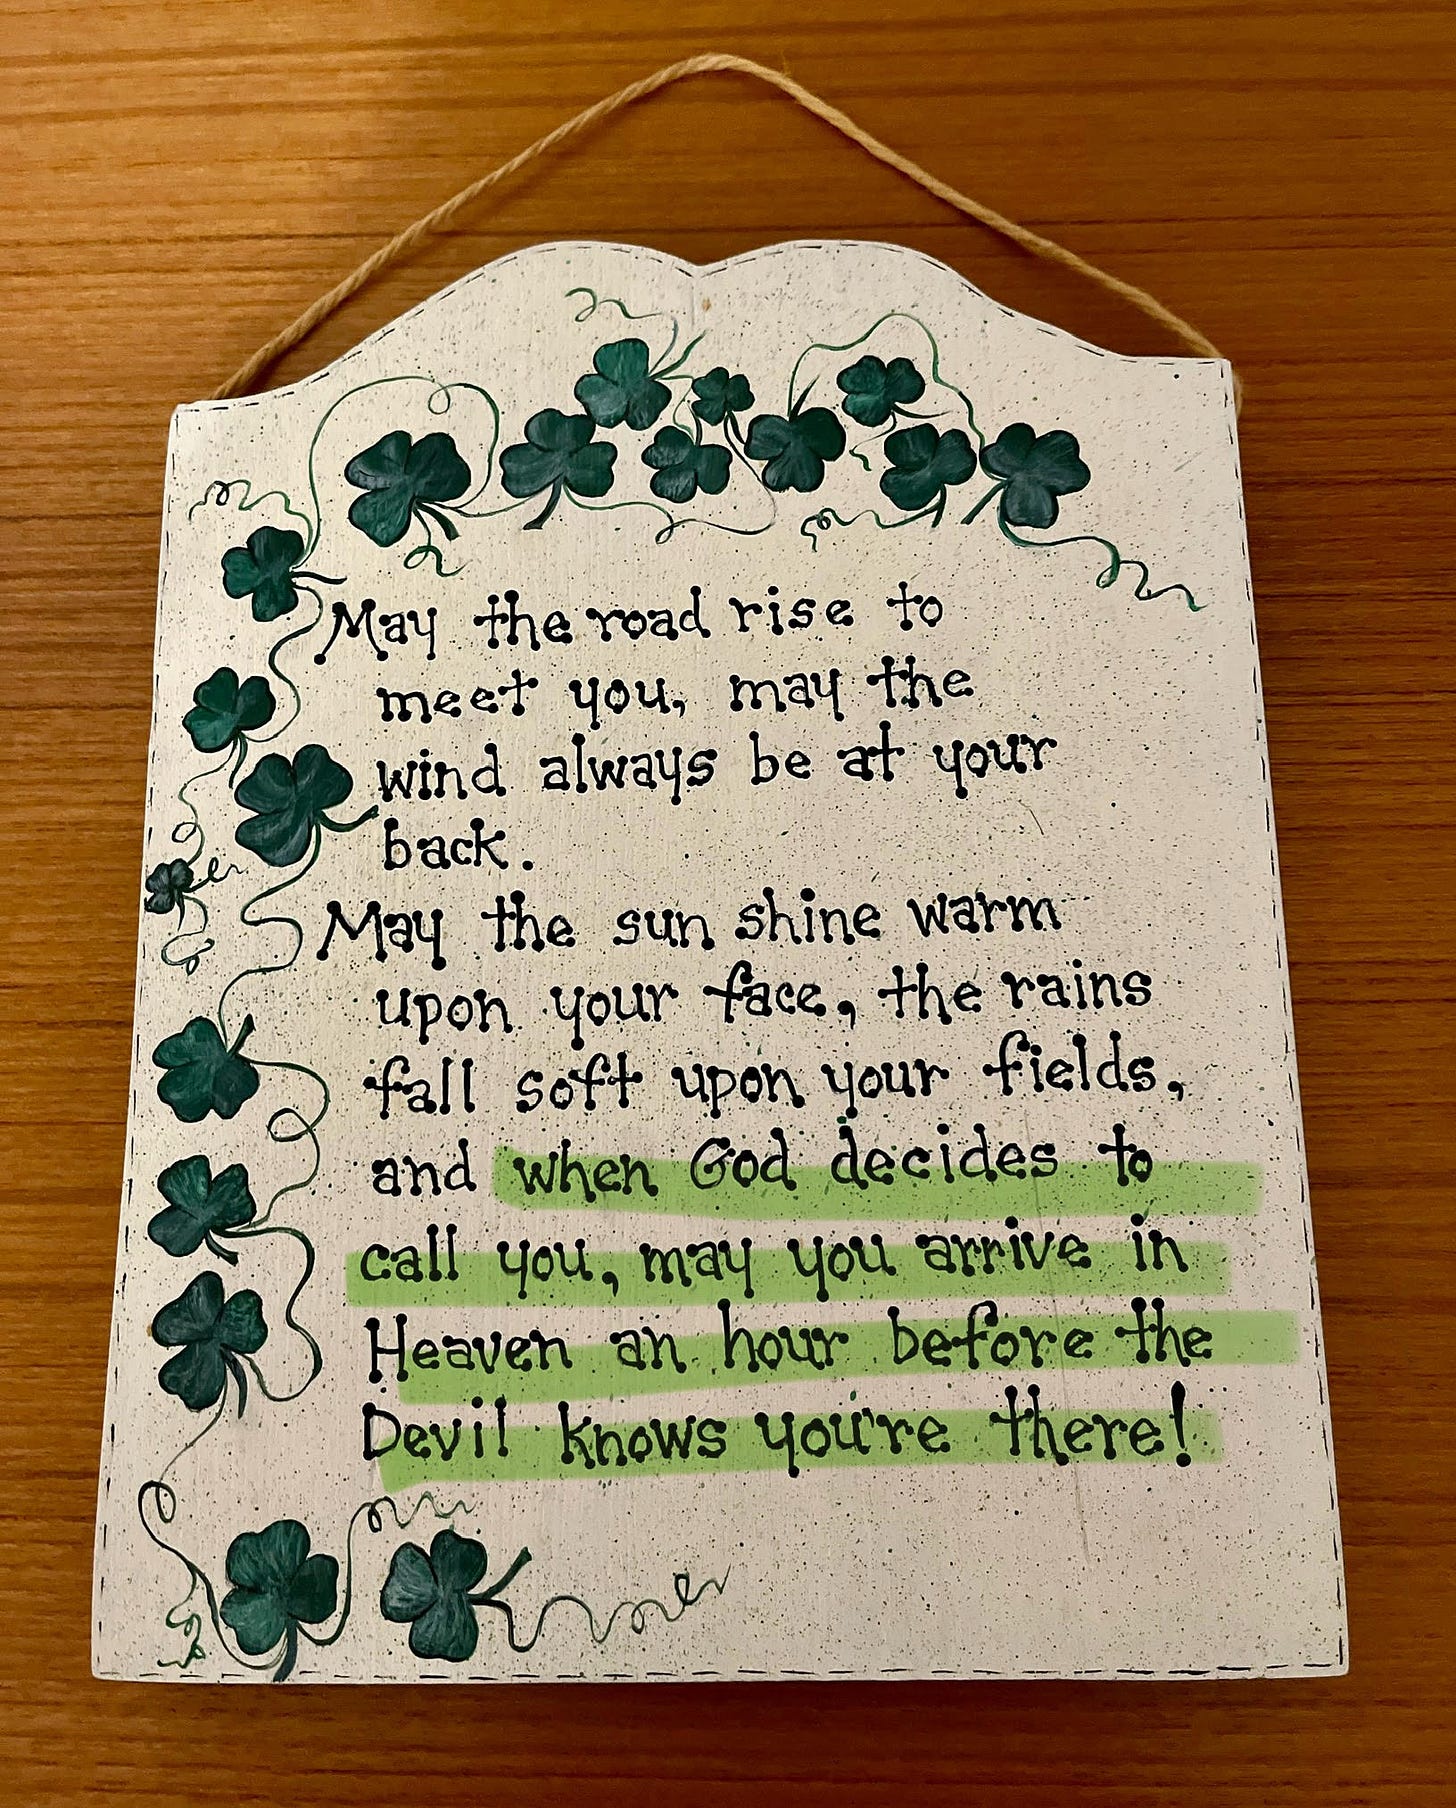 May the road rise to
meet you, may the
wind always be at your
back.
May the sun shine warm
upon your face, the rains
fall soft upon your fields,
and when God decides to
call you, may you arrive in
Heaven an hour before the
Devil knows you're there!